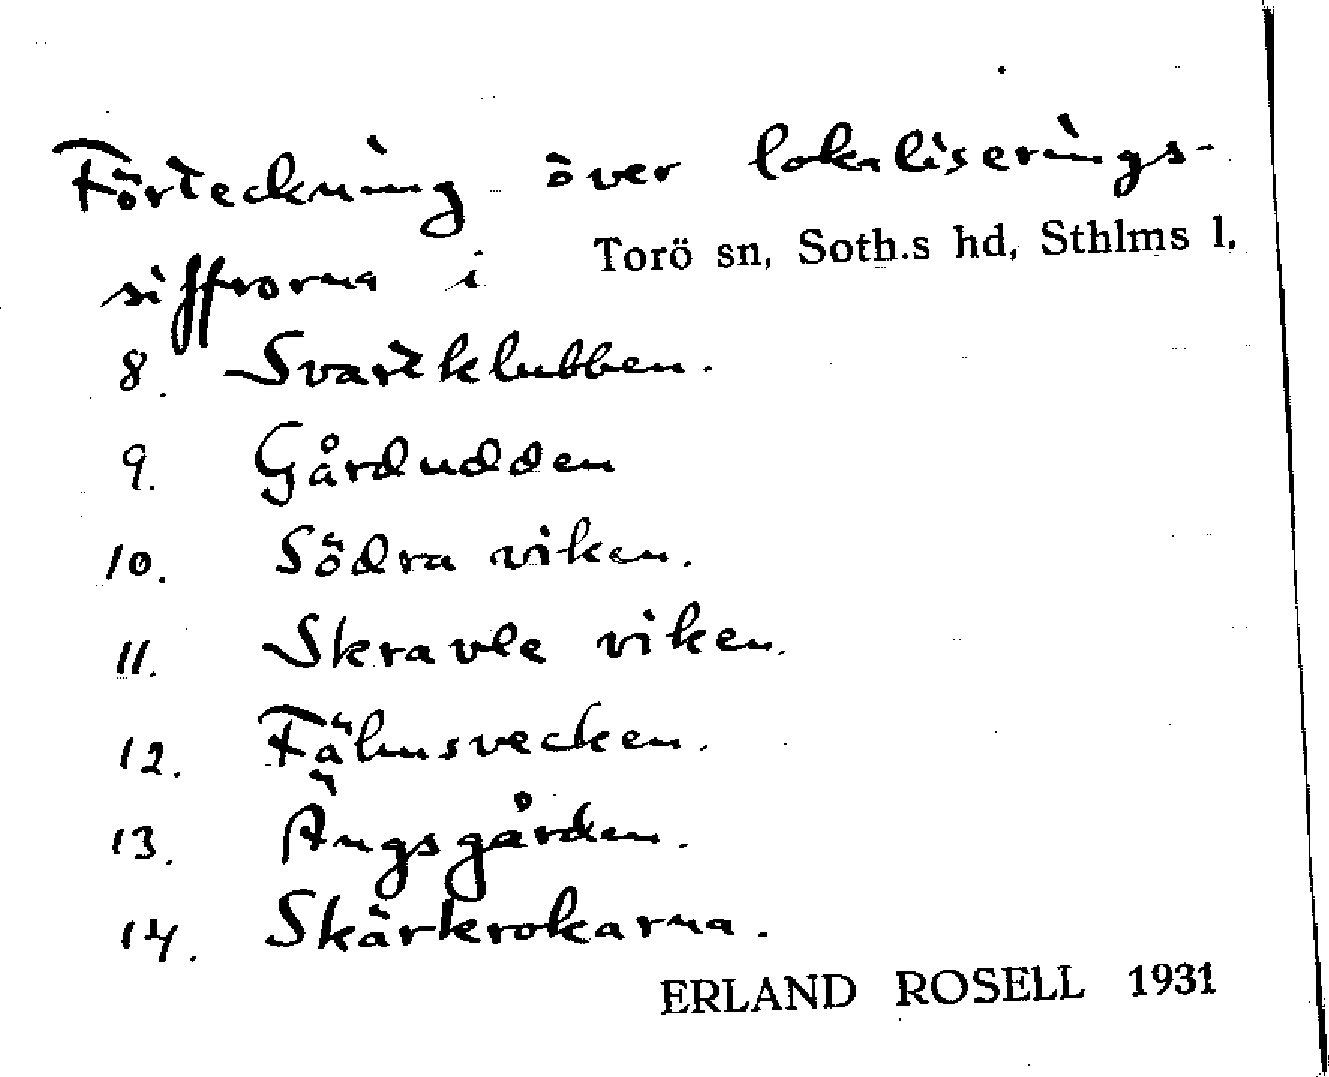 Förteckning över lokaliserings-
siffrorna i Torö sn, Soth.s hd, Sthlms l.
8. Svartklubben.
9. Gårdudden
10. Södra viken.
11. Skravle viken.
12. Fähusvecken.
13. Ängsgården.
14. Skärkrokarna.
ERLAND ROSELL 1931